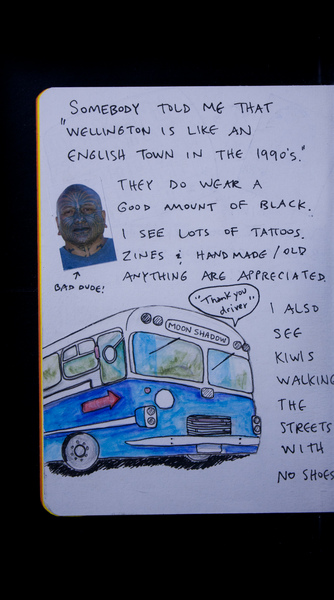 SOMEBODY TOLD ME THAT
"WELLINGTON IS LIKE AN
ENGLISH TOWN IN THE 1990's."
THEY DO WEAR A
GOOD AMOUNT OF BLACK.
I SEE LOTS OF TATTOOS.
ZINES & HANDMADE/OLD
ANYTHING ARE APPRECIATED.
BAD DUDE!
"Thank you
driver"
MOON SHADOW
I ALSO
SEE
KIWIS
WALKING
THE
STREETS
WITH
NO SHOES